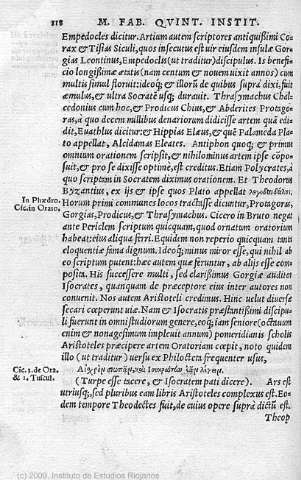 118 M. FAB. QVINT. INSTIT.
Empedocles dicitur. Artium autem scriptores antiquißimi Co
rax & Tisias Siculi, quos insecutus est uir eiusdem insulæ Gor
gias Leontinus, Empedoclis (ut traditur) discipulus. Is benefi
cio longißimæ ætatis (nam centum & nouem uixit annos) cum
multis simul floruit: ideoq; & illorũ de quibus suprà dixi, fuit
æmulus, & ultra Socratẽ usq; durauit. Thrasymachus Chal
cedonius cum hoc, & Prodicus Chius, & Abderites Protago-
ras, à quo decem millibus denariorum didicisse artem quã edi-
dit, Euathlus dicitur: & Hippias Elæus, & quẽ Palameda Pla
to appellat, Alcidamas Eleates. Antiphon quoq; & primus
omnium orationem scripsit, & nihilominus artem ipse cõpo-
suit, & pro se dixisse optimè, est creditus. Etiam Polycrates, à
quo scriptam in Socratem diximus orationem. Et Theodorus
Byzantius, ex ijs & ipse quos Plato appellat
In Phædro. Horum primi communes locos tractasse dicuntur, Protagoras,
Cic. in Orato. Gorgias, Prodicus, & Thrasymachus. Cicero in Bruto negat
ante Periclem scriptum quicquam, quod ornatum oratorium
habeat: eius aliqua ferri. Equidem non reperio quicquam tanta
eloquentiæ fama dignum. Ideoq; minus miror esse, qui nihil ab
eo scriptum putent: hæc autem quæ feruntur, ab alijs esse com-
posita. His successere multi, sed clarißimus Gorgiæ auditorũ
Isocrates, quanquam de præceptore eius inter autores non
conuenit. Nos autem Aristoteli credimus. Hinc uelut diuersæ
secari cœperunt uiæ. Nam & Isocratis præstantißimi discipu-
li fuerunt in omni studiorum genere, eoq; iam seniore (octauum
enim & nonagesimum impleuit annum) pomeridianis scholis
Aristoteles præcipere artem Oratoriam cœpit, noto quidem
illo (ut traditur) uersu ex Philocteta frequenter usus,
Cic. 3. de Ora.
& 1. Tuscul.
(Turpe esse tacere, & Isocratem pati dicere). Ars est
utriusq; sed pluribus eam libris Aristoteles complexus est. Eo-
dem tempore Theodectes fuit, de cuius opere suprà dictũ est.
Theop
(c) 2009. Instituto de Estudios Riojanos